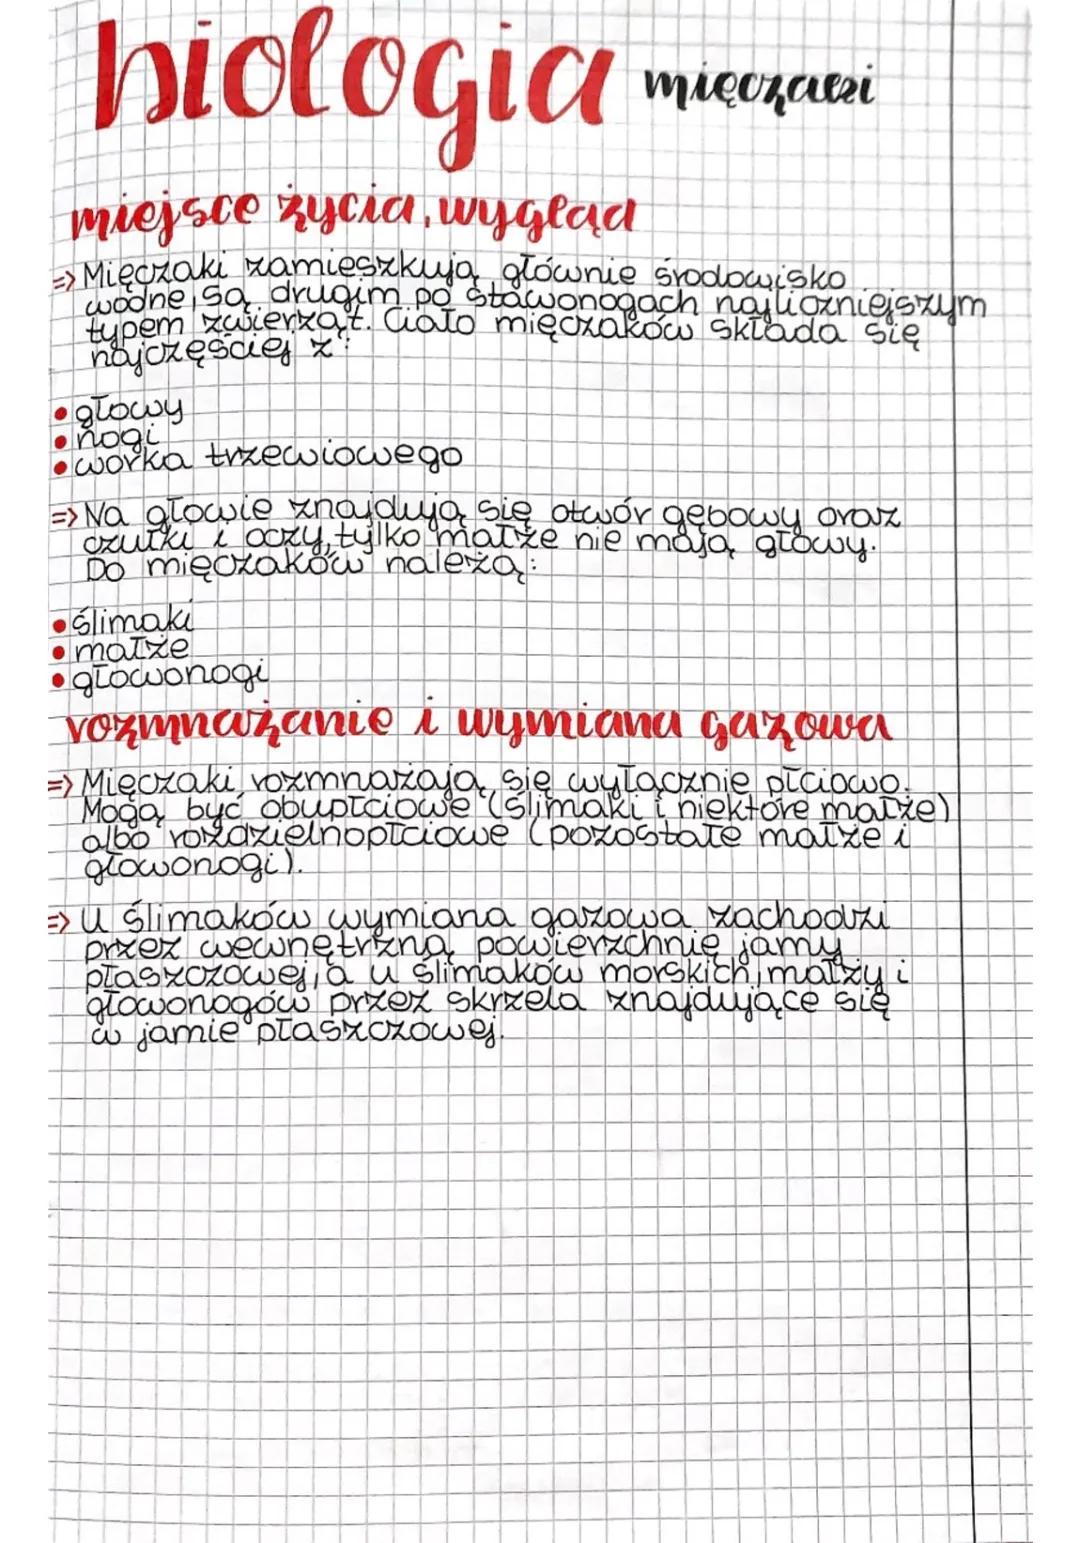 biologia mięczaki
miejsce życia, wygląd
=> Mięczaki zamieszkują głównie środowisko
wodne, są drugim po stawonogach najliczniejszym
typem zwierząt. Ciało mięczaków składa się
najczęściej z:
• głowy
• nogi
• worka trzewiowego
=> Na głowie znajdują się otwór gębowy oraz
czułki i oczy, tylko małże nie mają głowy.
Do mięczaków należą:
• ślimaki
• małże
• głowonogi
rozmnażanie i wymiana gazowa
=> Mięczaki rozmnażają się wyłącznie płciowo.
Mogą być obupłciowe (ślimaki i niektóre małże)
albo rozdzielnopłciowe (pozostałe małże i
głowonogi).
=> U ślimaków wymiana gazowa zachodzi
przez wewnętrzną powierzchnię jamy
płaszczowej, a u ślimaków morskich, małży i
głowonogów przez skrzela znajdujące się
w jamie płaszczowej.